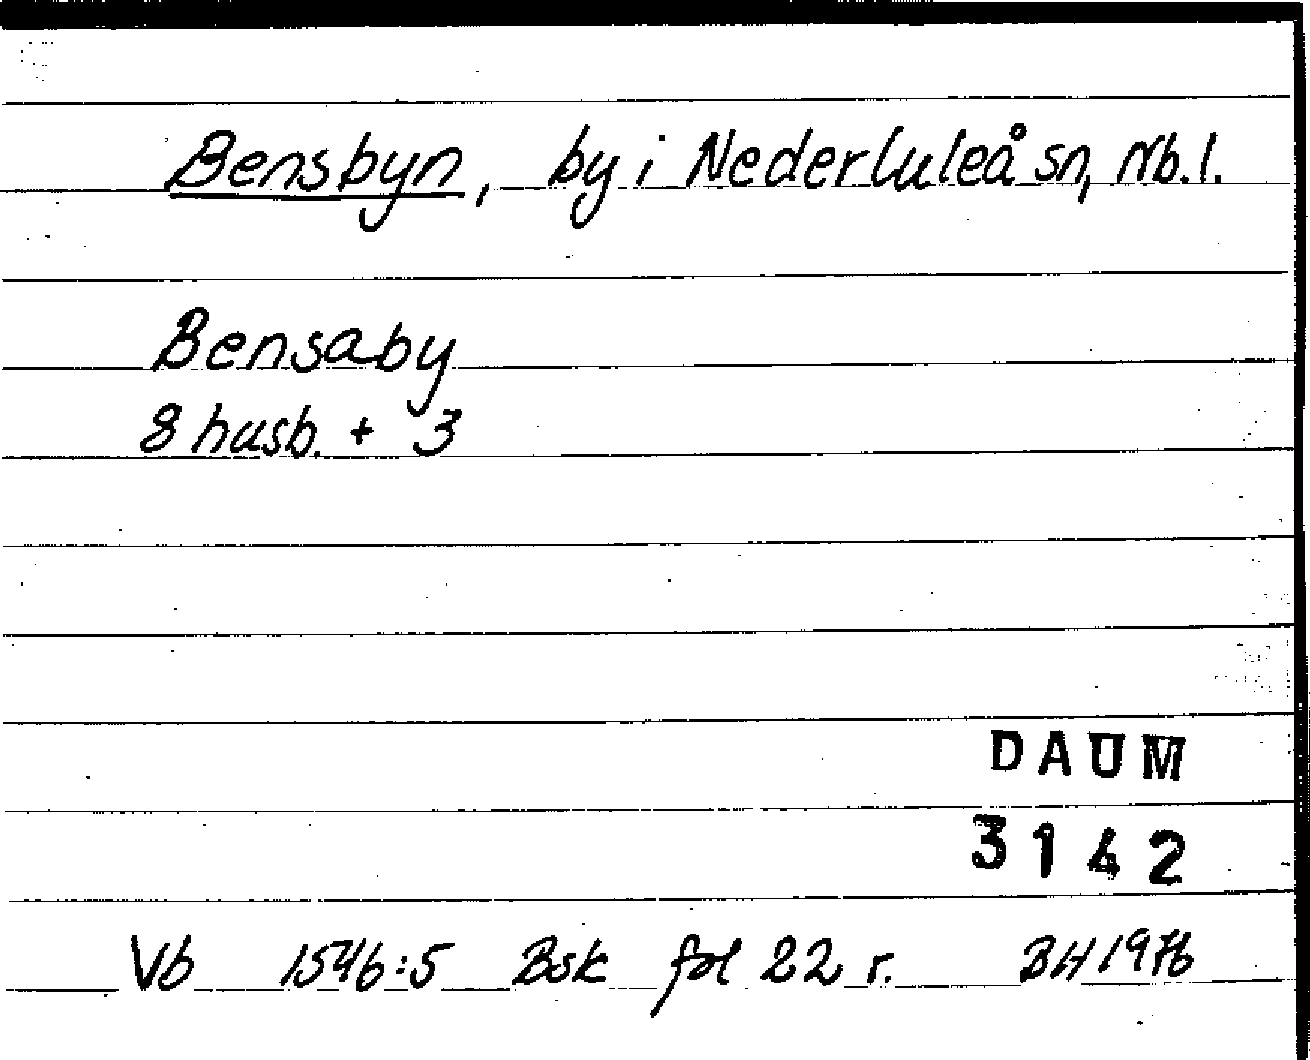 Bensbyn, by i Nederluleå sn, Nb.l.
Bensaby
8 husb. + 3
DAUM
3142
Vb 1546:5 Bsk fol 22 r. BH 1976